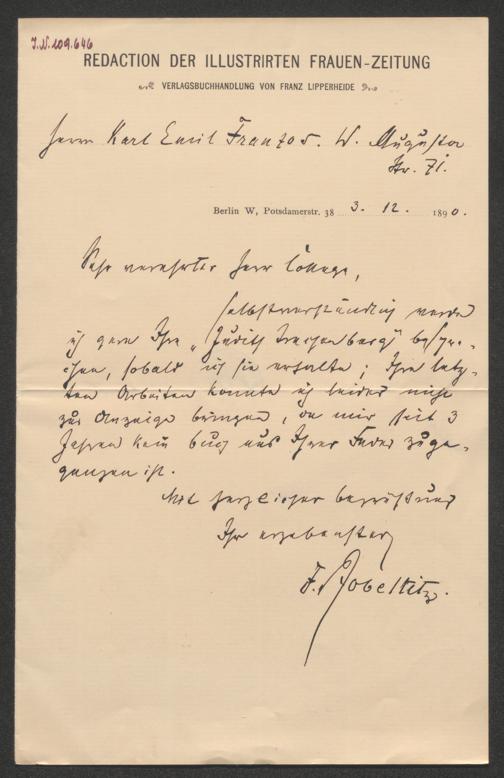 J.N. 109.646
REDACTION DER ILLUSTRIRTEN FRAUEN-ZEITUNG
VERLAGSBUCHHANDLUNG VON FRANZ LIPPERHEIDE
Herrn Karl Emil Franzos. W. Augusta
Str. 71.
Berlin W, Potsdamerstr. 38 3. 12. 1890.
Sehr verehrter Herr College,
selbstverständlich werde
ich gern Ihre „Judith Trachtenberg" bespre-
chen, sobald ich sie erhalte; Ihre letz-
ten Arbeiten konnte ich leider nicht
zur Anzeige bringen, da mir seit 3
Jahren kein Buch aus Ihrer Feder zuge-
gangen ist.
Mit herzlicher Begrüßung
Ihr ergebenster
F. Zobeltitz.